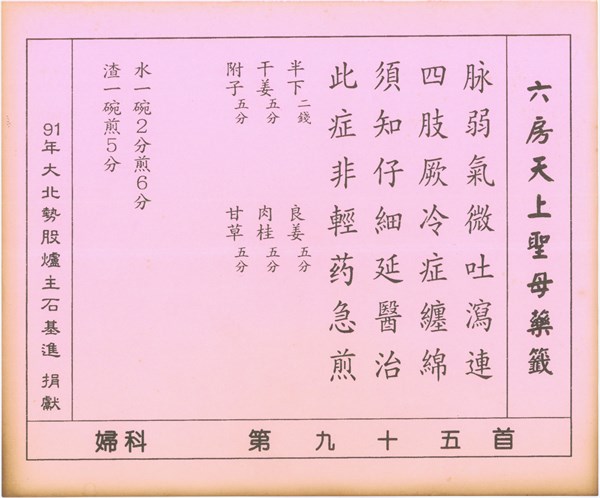 六房天上聖母藥籤
脉弱氣微吐瀉連
四肢厥冷症纏綿
須知仔細延醫治
此症非輕药急煎
半下二錢 良姜五分
干姜五分 肉桂五分
附子五分 甘草五分
水一碗2分煎6分
渣一碗煎5分
91年大北勢股爐主石基進 捐獻
婦科 第九十五首